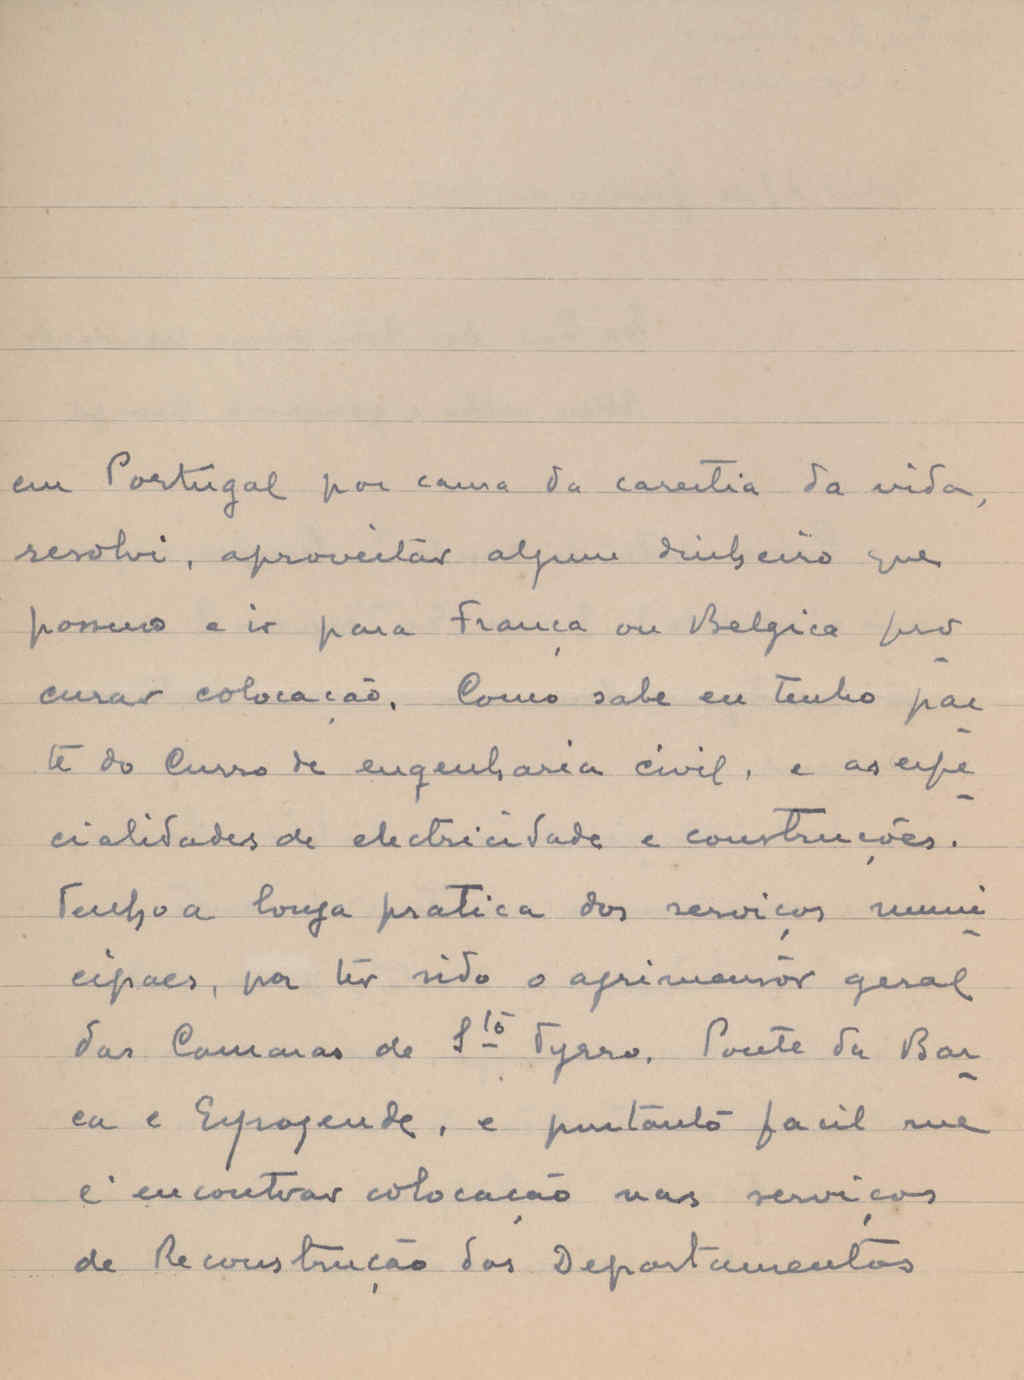 em Portugal por causa da carestia da vida,
resolvi, aproveitar algum dinheiro que
possuo e ir para França ou Belgica pro
curar colocação. Como sabe eu tenho par
te do Curso de engenharia civil, e as espe
cialidades de electricidade e construções.
Tenho a longa pratica dos serviços muni
cipaes, por ter sido o agrimensôr geral
das Camaras de Sto Tyrso, Ponte da Bar
ca e Espozende, e portanto facil me
é encontrar colocação nas serviços
de Reconstrução dos Departamentos